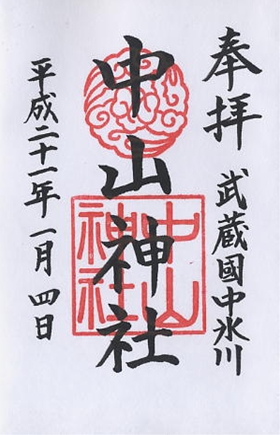 奉拝
武蔵國中氷川
中山神社
中山
神社
平成二十一年一月四日